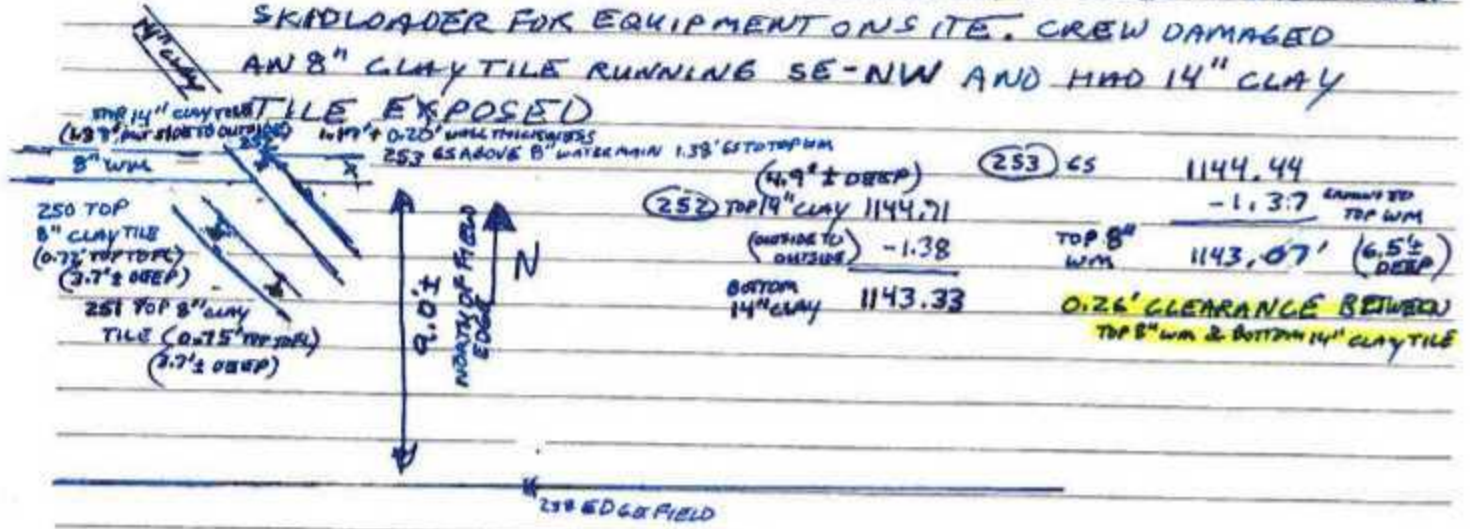 SKIDLOADER FOR EQUIPMENT ONSITE. CREW DAMAGED
AN 8" CLAY TILE RUNNING SE-NW AND HAD 14" CLAY
TILE EXPOSED
14" CLAY
TOP 14" CLAY TILE
(1.38' OUTSIDE TO OUTSIDE)
252
0.20' WALL THICKNESS
253 GS ABOVE 8" WATERMAIN 1.38' GS TO TOP WM
8" WM
250 TOP
8" CLAY TILE
(3.7'± DEEP)
251 TOP 8" CLAY
TILE
(3.7'± DEEP)
9.0'±
NORTH OF FIELD
EDGE
N
(4.9'± DEEP)
252 TOP 14" CLAY 1144.71
(OUTSIDE TO
OUTSIDE) -1.38
BOTTOM
14" CLAY 1143.33
253 GS 1144.44
-1.37 TO
TOP WM
TOP 8"
WM 1143.07' (6.5'±
DEEP)
0.26' CLEARANCE BETWEEN
TOP 8" WM & BOTTOM 14" CLAY TILE
EDGE FIELD